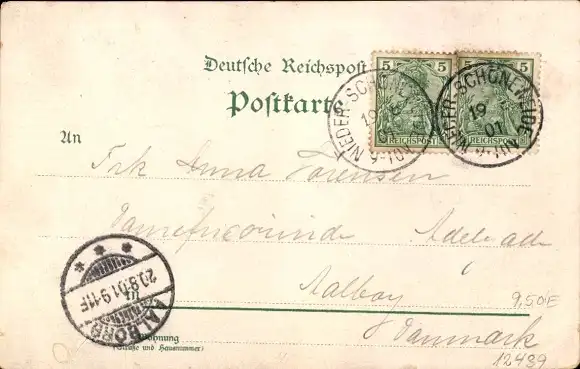 Deutsche Reichspost
Postkarte
5 5 5 5
REICHSPOST REICHSPOST
NIEDER-SCHÖNEWEIDE
19 8 01
9-10V
NIEDER-SCHÖNEWEIDE
19
01
An
Frk Anna Sørensen
Adelgade
Aalborg
Danmark
AALBORG
20.8.01 9-11F
Wohnung
(Straße und Hausnummer)
9,50E
12439